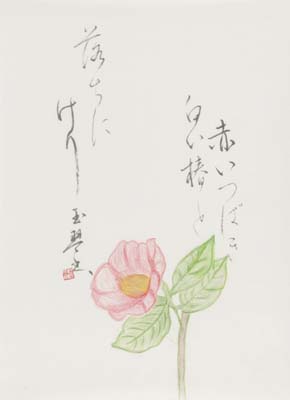 赤いつばき
白い椿と
落ちに
けり
玉